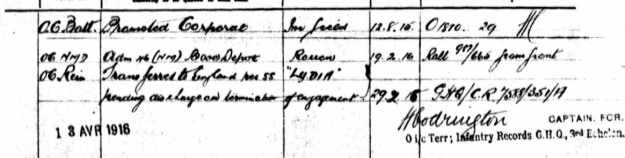 O.C. Batt. Promoted Corporal In field 12.8.15 O 1810. 29
OC NMD Adm No (NM) Base Depot Rouen 19.2.16 Roll from front
OC Rein Transferred to England per SS "LYDIA"
pending discharge on termination of engagement 29.2.16 GHQ/CR
13 AVR 1916 Hodrington CAPTAIN. FOR.
O i/c Terr; Infantry Records G.H.Q., 3rd Echelon.